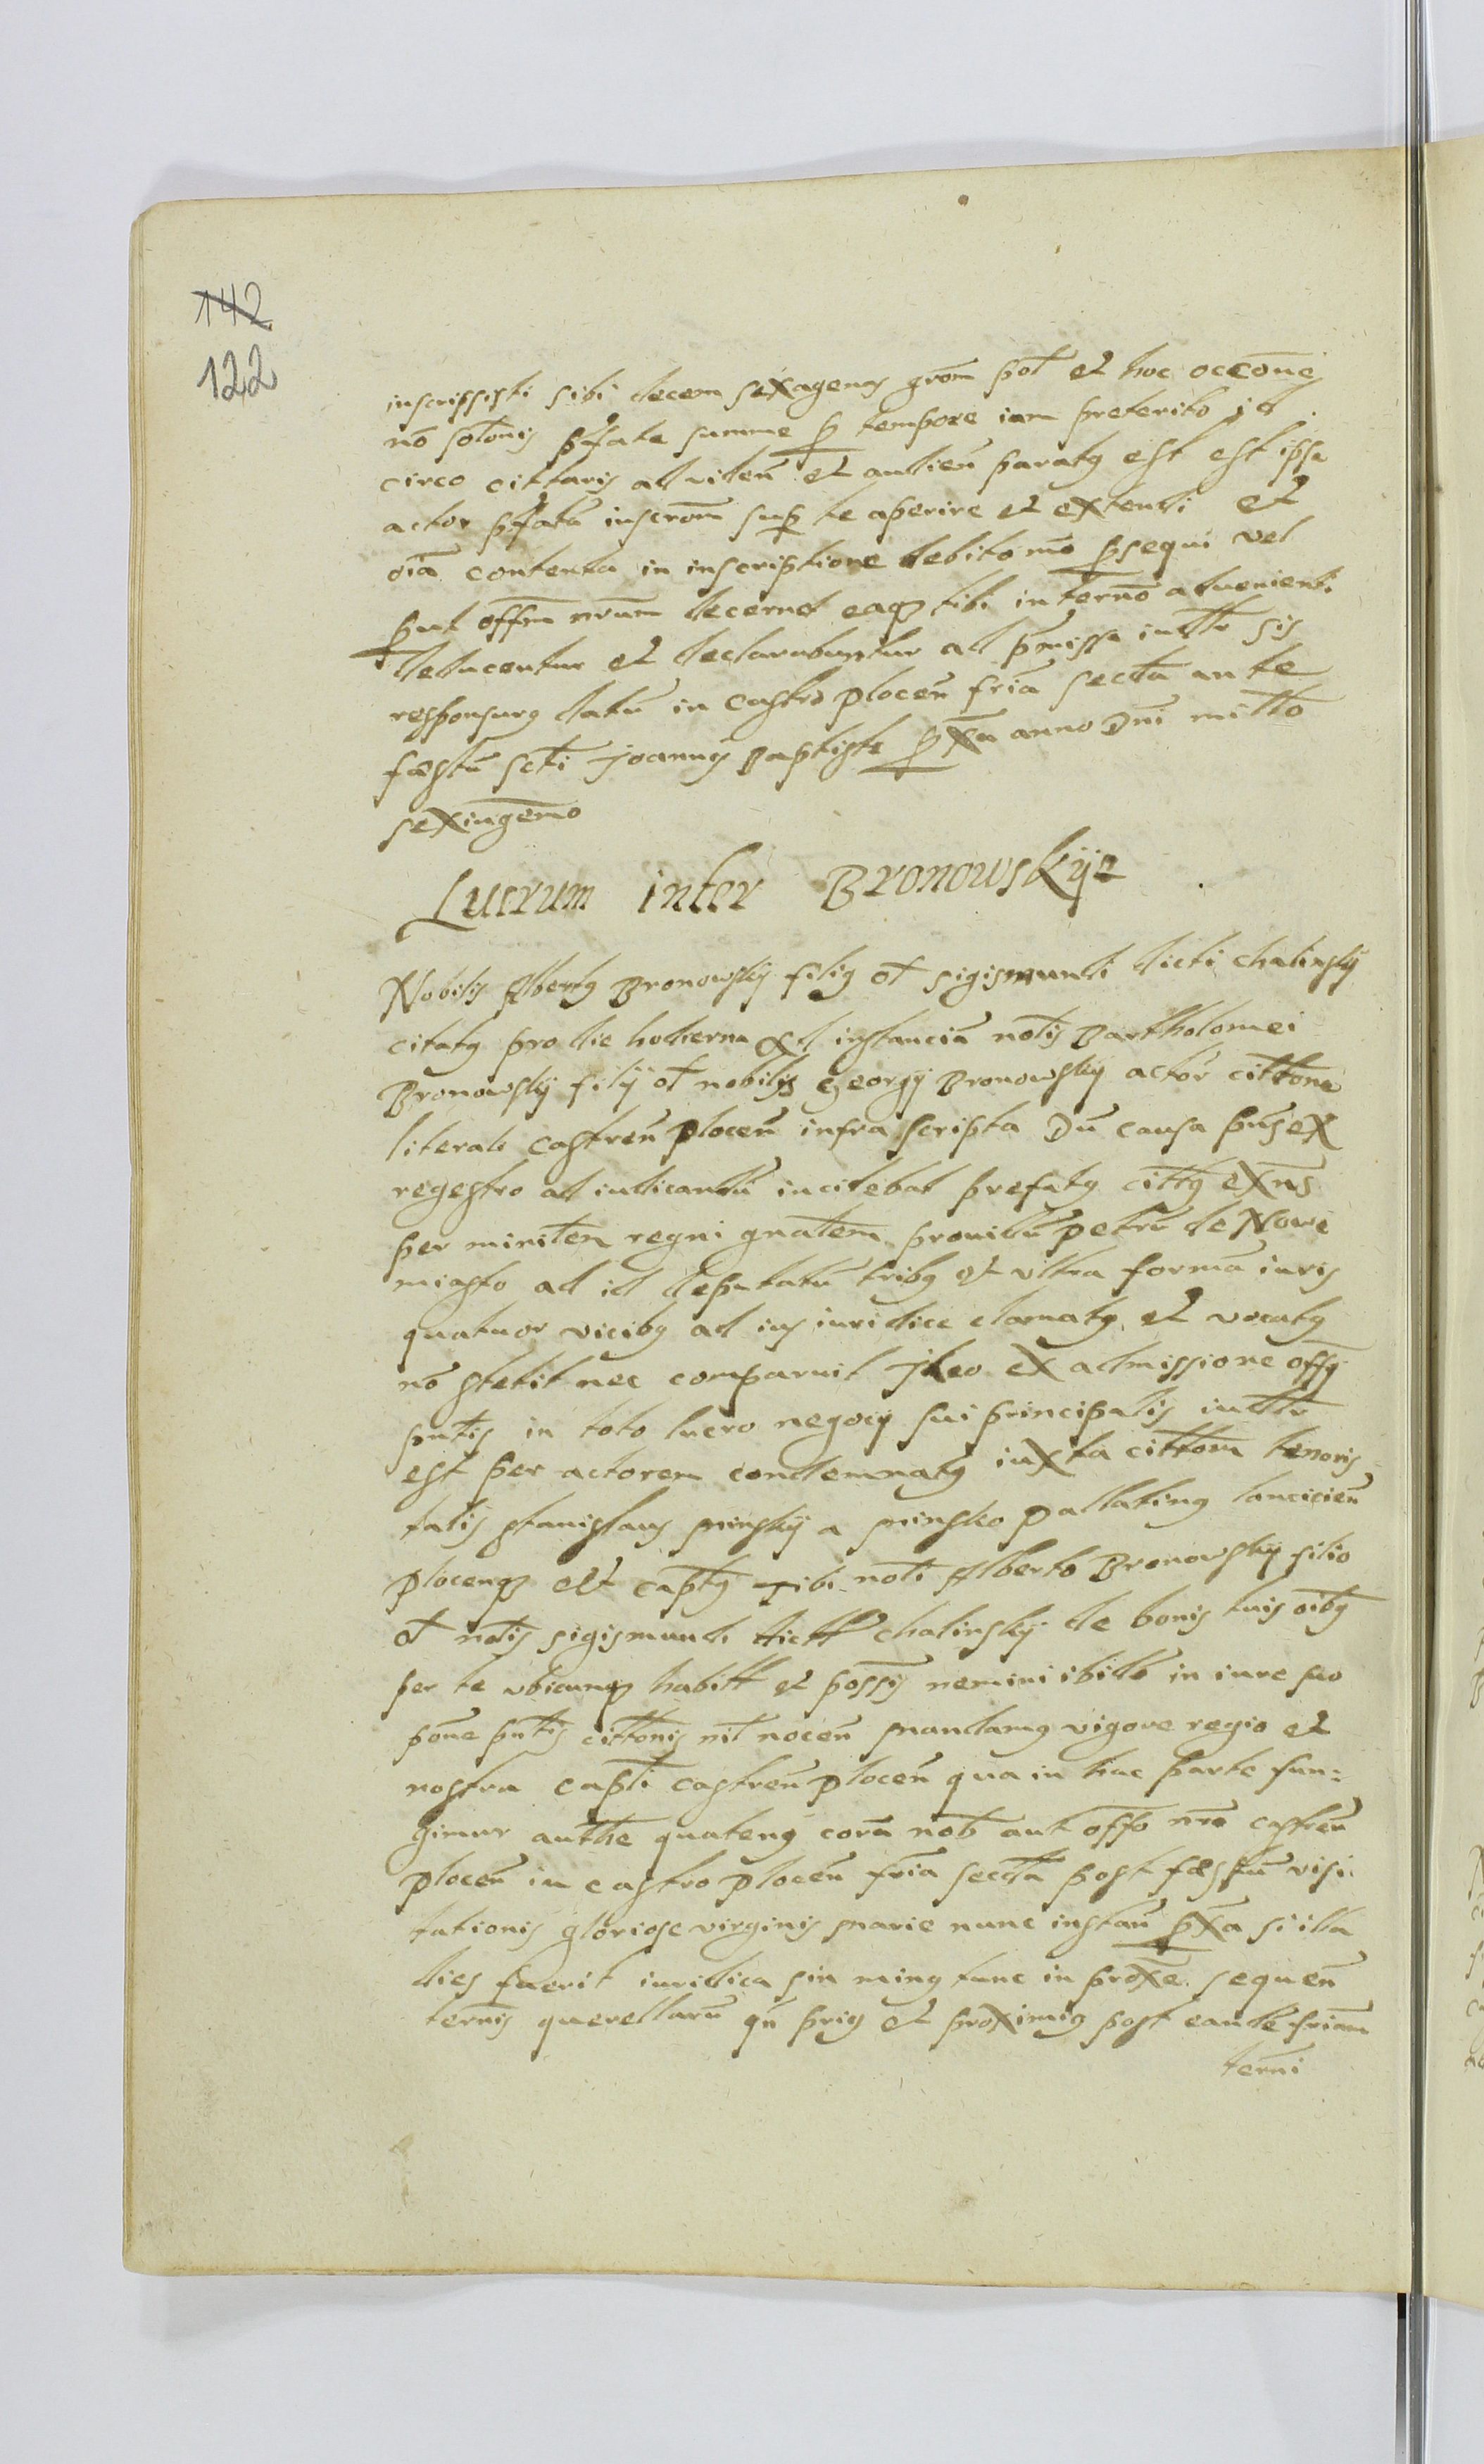 142
122
inscripsisti sibi decem sexagenas grom pol et hoc occone
no solonis pfate summe p tempore iam preterito id
circo cittaris ad viden et audien paratq est est ipse
actor pfatu inscrom sup te aperire et extendi et
oia contenta in inscriptione debito mo psequi vel
put offm nrum decernet eaq tibi in termo advenienti
deducentur et declarabuntur ad pmissa iudtr sis
responsurq datu in castro plocen fria secda ante
fæstu scti Joannis Baptiste pxa anno Dni millo
sexingemo
Lucrum inter Bronowskije
Nobilis Albertq Bronowskij filiq ol Sigismundi dicti chalinskij
citatq pro die hodierna ad instancia nolis Bartholomei
Bronowskij filij ol nobilis Georgij Bronowskij actor cittone
literali castren plocen infra scripta Du causa pns ex
regestro ad iudicandu incidebat prefatq cittq exns
per miniten regni gnalem providu petru de Nowe
miasto ad id deputatu tribq et ultra forma iuris
quatuor vicibq ad ius iuridice clamatq et vocatq
no stetit nec comparuit Jdeo ex admissione offij
pntis in toto lucro negocij sui principalis iudtr
est per actorem condemnatq iuxta cittom tenoris
talis Stanislaus Minskij a Minsko pallatinq lancicien
plocenq etc captq Tibi noli Alberto Bronowskij filio
ol nolis sigismundi dictt chalinskij de bonis tuis oibq
per te ubicunq habitt et possis nemini ibidto in iure suo
pone pntis cittonis nil nocen mandamq vigore regio et
nostra capti castren plocen qua in hac parte fun:
gimur authe quatenq cora nob aut offo nro castren
plocen in castro plocen fria secda post fæstu visi:
tationis gloriose virginis marie nunc instan pxa si illa
dies fuerit iuridica sin minq tunc in proxe sequen
ternis querellaru qn priq et proximiq post eande friam
terni